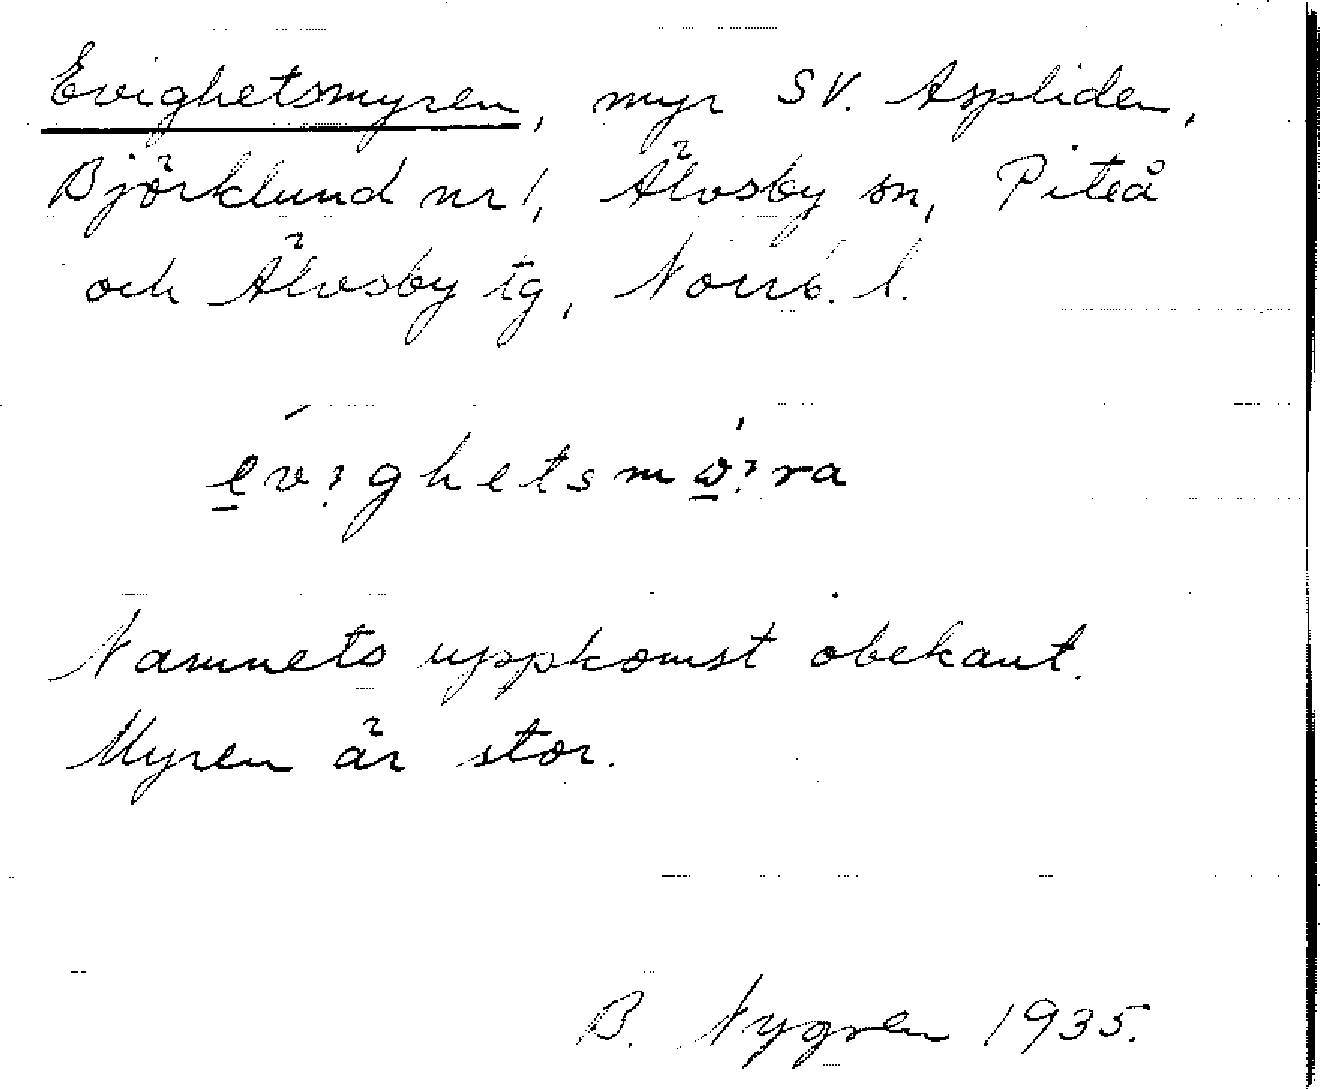 Evighetsmyren, myr SV. Aspliden,
Björklund nr 1, Älvsby sn, Piteå
och Älvsby tg, Norrb. l.
Namnets uppkomst obekant.
Myren är stor.
B. Nygren 1935.